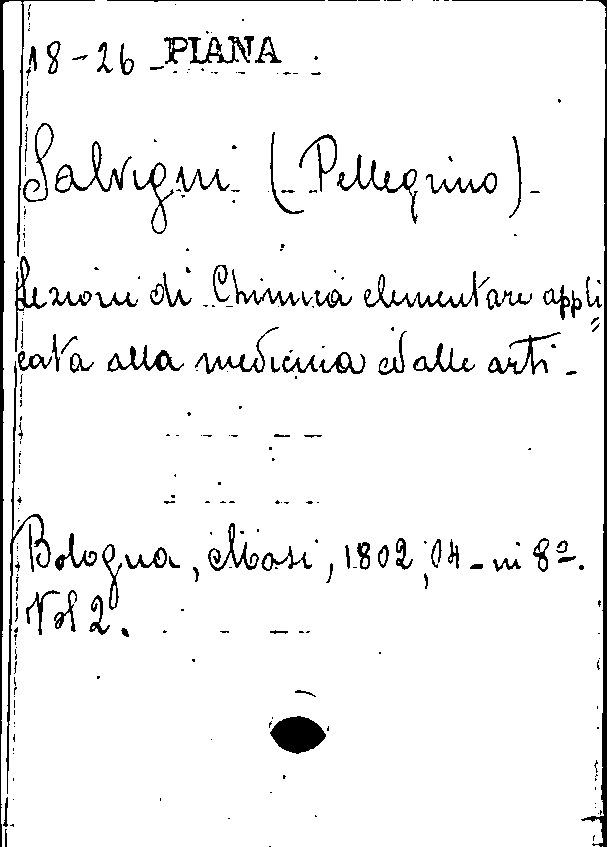 18-26 PIANA
Salvigni (Pellegrino)-
Lezioni di Chimica elementare appli
cata alla medicina ed alle arti-
Bologna, Masi, 1802, 04 - in 8º.
Vol 2.